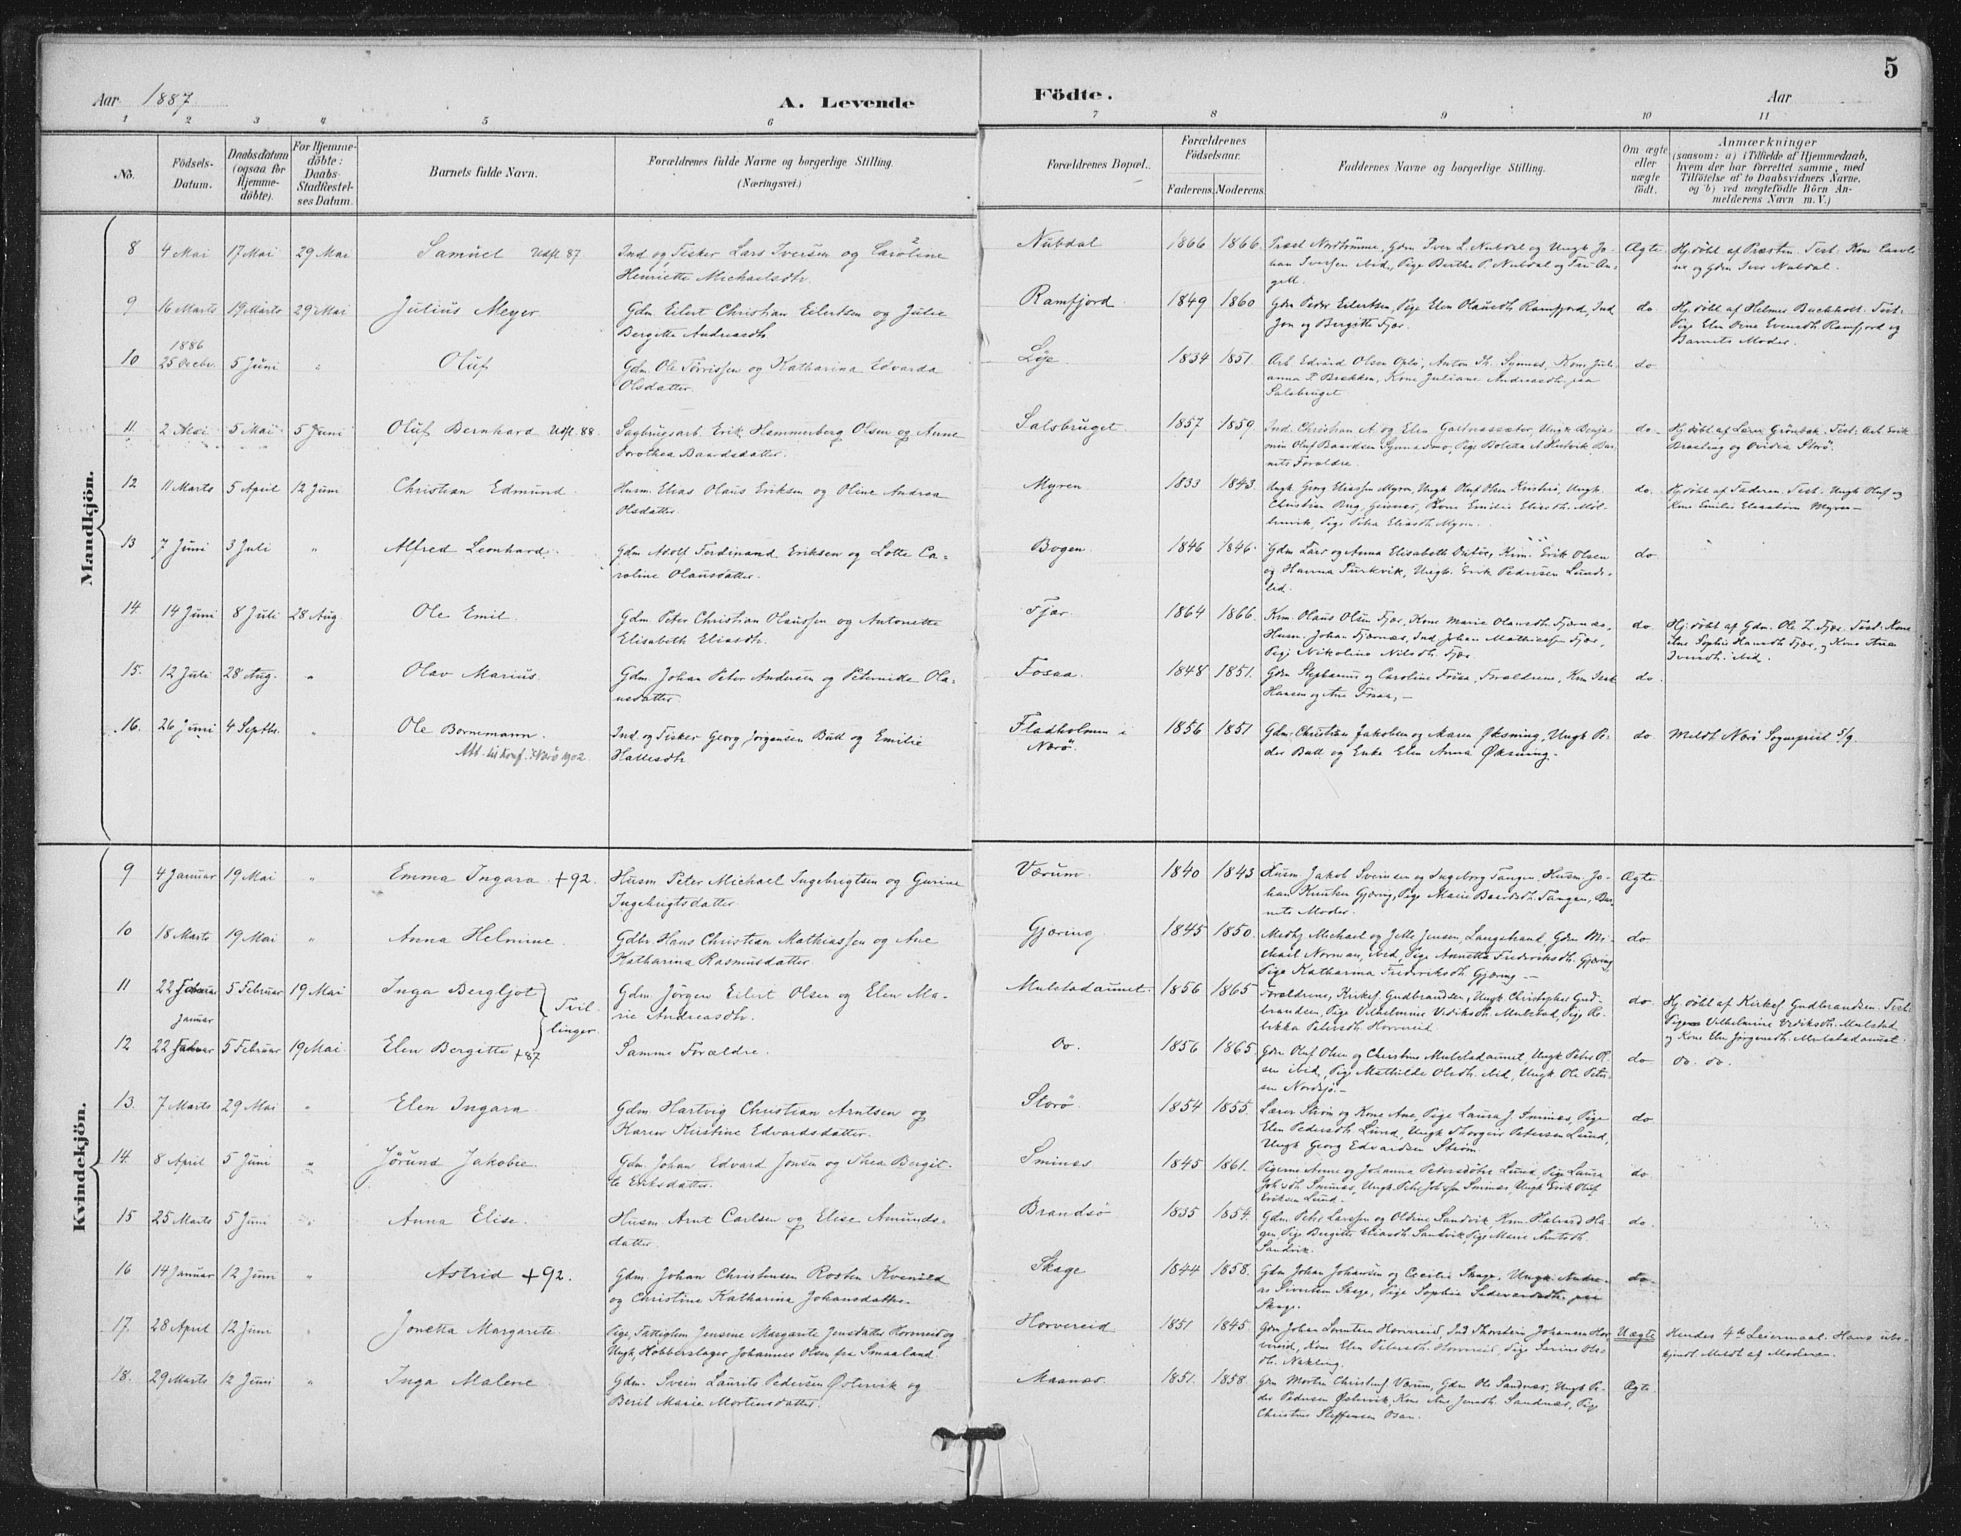 5
Aar 1887
A. Levende
Födte.
Aar
1 2 3 4 5 6 7 8 9 10 11
No.
Födsels-
Datum.
Daabsdatum
(ogsaa for
Hjemme-
döbte).
For Hjemme-
döbte:
Daabs-
Stadfæstel-
ses Datum.
Barnets fulde Navn.
Forældrenes fulde Navne og borgerlige Stilling.
(Næringsvei.)
Forældrenes Bopæl.
Forældrenes
Födselsaar.
Faderens. Moderens.
Faddernes Navne og borgerlige Stilling.
Om ægte
eller
uægte
födt.
Anmærkninger
(saasom: a) i Tilfælde af Hjemmedaab,
hvem der har forrettet samme, med
Tilföielse af to Daabsvidners Navne,
og b) ved uægtefödte Börn An-
melderens Navn m. V.)
Mandkjön.
8 4 Mai 17 Mai 29 Mai Samuel Udfl. 87. Ind. og Fisker Lars Iversen og Caroline
Henriette Michaelsdtr.
Nubdal 1866 1866. Gdm Iver L. Nubdal og Ungk Jo-
han Iversen ibid., Pige Berthe P. Nubdal
Ægte Hj. döbt af Præsten. Test. Kone Caroli-
ne og Gdm Iver Nubdal.
9 16 Marts 19 Marts 29 Mai Julius Meyer Gdm. Eilert Christian Eilertsen og Julie
Bergitte Andreasdtr
Ramfjord. 1849 1860 Gdm Peder Eilertsen, Pige Elen Olausdtr Ramfjord, Ind.
Jon og Bergitte Fjær.
do. Hj. döbt af Helmer Buchholt. Test:
Pige Elen Evensdtr Ramfjord og
Barnets Moder.
1886
10 25 Decbr. 5 Juni " Oluf Gdm. Ole Torrissen og Katharina Edvarda
Olsdatter.
Löe 1834 1851. Arb. Edvard Olsen Oplö, Anton Th. Symnes, Kone Juli-
anna P. Brækken, Kone Juliane Andreasdtr. paa
Salsbruget
do
11 2 Mai 5 Mai 5 Juni Oluf Bernhard Udfl. 88. Sagbrugsarb. Erik Hammerberg Olsen og Anne
Dorothea Baardsdatter.
Salsbruget 1857 1859 Ind. Christian A. og Elen
nets Forældre.
do. Hj. döbt af Lærer Grönbæk. Test: Arb. Erik
Bræsling og Ovidia Storö.
12 11 Marts 5 April 12 Juni Christian Edmund. Husm. Elias Olaus Eriksen og Oline Andrea
Olsdatter.
Myren. 1833 1843. Ungk. Georg Eliassen Myren, Ungk Oluf Olsen
Pige Petra Eliasdtr. Myren.
do. Hj. döbt af Faderen. Test. Ungk Oluf og
Kone Emilie Myren
13 7 Juni 3 Juli " Alfred Leonhard. Gdm Adolf Ferdinand Eriksen og Lotte Ca-
roline Olausdatter.
Bogen. 1846 1846. Erik Olsen
og Hanna Purkvik, Ungk. Erik Pedersen Lunds-
lid.
do
14. 14 Juni 8 Juli 28 Aug. Ole Emil. Gdm. Peter Christian Olaussen og Antonette
Elisabeth Eliasdtr.
Fjær. 1864 1866. Krm. Olaus Olsen Fjær, Kone Marie Olausdtr Fjærnæs,
Husm. Johan Fjærnæs, Ind. Johan Mathiesen Fjær,
Pige Nikoline Nilsdtr. Fjær.
do. Hj. döbt af Gdm. Ole Z. Fjær. Test. Kone
15. 12 Juli 28 Aug. " Olav Marius. Gdm. Johan Peter Andersen og Peternikke Ola-
usdatter.
Fosaa. 1848 1851. Gdm Stephanus og Caroline Fosaa, Forældrene,
Hansen og Ane Fosaa,
do
16. 26 Juni 4 Septbr. " Ole Bornemann. Ind. og Fisker Georg Jörgensen Bull og Emilie
Hallesdtr.
Att. til konf. i Nærö 1902.
Fladholmen i
Nærö.
1856 1851 Gdm. Christian Jakobsen og Maren Öksning, Ungk Pe-
der Bull og Enke Elen Anna Öksning.
do Meldt Nærö Sognepræst 5/9.
Kvindekjön.
9 4 Januar 19 Mai " Emma Ingara. +92. Husm. Peter Michael Ingebrigtsen og Gurine
Ingebrigtsdatter.
Værum. 1840 1843 Husm. Jakob Sveinsen og Ingeborg Tangen, Husm. Jo-
han Knutsen Gjæring, Pige Marie Baardsdtr. Tangen, Bar-
nets Moder.
Ægte
10 18 Marts 19 Mai " Anna Helmine. Gdbr. Hans Christian Mathiassen og Ane
Katharina Rasmusdatter.
Gjæring. 1845 1850. Michael og Jette Jensen, Langstrand, Gdm Mi-
chael Norman, ibid., Pige Annette Fredriksdtr. Gjæring
Pige Katharina Fredriksdtr Gjæring
do
11 22 Januar 5 Februar 19 Mai Inga Bergljot Tvil-
linger. Gdm. Jörgen Eilert Olsen og Elen Ma-
rie Andreasdtr.
Mulstadaunet. 1856 1865 Forældrene, Kirkes. Gudbrandsen, Ungk Christopher Gud-
brandsen, Pige Vilhelmine Vediksdtr. Mulstad, Pige Re-
bekka Petersdtr. Horvereid
do. Hj. döbt af Kirkes. Gudbrandsen. Test:
Pigen Vilhelmine Vediksdtr. Mulstad
og Kone Elen Jörgensdtr. Mulstadaunet.
12 22 5 Februar 19 Mai. Elen Bergitte +87 Samme Forældre.
Do. 1856 1865. Gdm Oluf Olsen og Christine Mulstadaunet, Ungk Peter Ol-
sen ibid., Pige Mathilde Olsdtr. ibid., Ungk Ole Peter-
sen Nordsjö.
do Do. do.
13. 7 Marts 29 Mai " Elen Ingara. Gdm. Hartvig Christian Arntsen og
Karen Kristine Edvardsdatter.
Storö 1854 1855. Lærer Ström og Kone Ane, Pige Laura J. Sminæs, Pige
Elen Pedersdtr. Lund, Ungk Thorgeir Petersen Lund,
Ungk Georg Edvardsen Ström.
do.
14. 8 April 5 Juni " Jörund Jakobie Gdm. Johan Edvard Jonsen og Thea Bergit-
te Eriksdatter.
Sminæs 1845 1861. Pigerne Anne og Johanna Petersdötre Lund, Pige Laura
Johsdtr. Sminæs, Ungk. Peter Johsen Sminæs, Ungk Erik Oluf
Eriksen Lund.
do
15 25 Marts 5 Juni " Anna Elise. Husm. Arnt Carlsen og Elise Amunds-
datter.
Brandsö 1835 1854. Gdm. Peter Larssen og Oldine Sandvik, Krm. Halvard Ha-
gen, Pige Bergitte Eliasdtr. Sandvik, Pige Marie Arntsdtr.
Sandvik.
do.
16 14 Januar 12 Juni " Astrid +92. Gdm. Johan Christensen Rosten Kverild
og Christine Katharina Johansdatter.
Skage 1844 1858. Gdm Johan Johansen og Cecilie Skage, Ungk. Andre-
as Sivertsen Skage, Pige Sophie
Skage.
do.
17. 28 April 12 Juni " Jonetta Margarete Pige, Fattiglem Jensine Margarite Jensdatter Horvereid og
Ungk, Hobberslager Johannes Olsen fra Smaaland.
Horvereid 1851 1845. Gdm Johan Lorntsen Horvereid, Ind Thorstein Johansen Hor-
vereid, Kone Elen Petersdtr. Horvereid, Pige Serine Ols-
dtr. Nakling.
Uægte Hendes 4de Leiermaal. Hans ube-
kjendt. Meldt af Moderen.
18. 29 Marts 12 Juni " Inga Malene. Gdm. Svein Laurits Pedersen Östervik og
Beril Marie Mortensdatter.
Maanæs. 1851. 1858. Gdm Morten Værum, Gdm Ole Sandnæs, Ungk Pe-
der Pedersen Östervik, Kone Ane Jensdtr. Sandnæs, Pige
Christine Steffensen Osan.
Ægte.